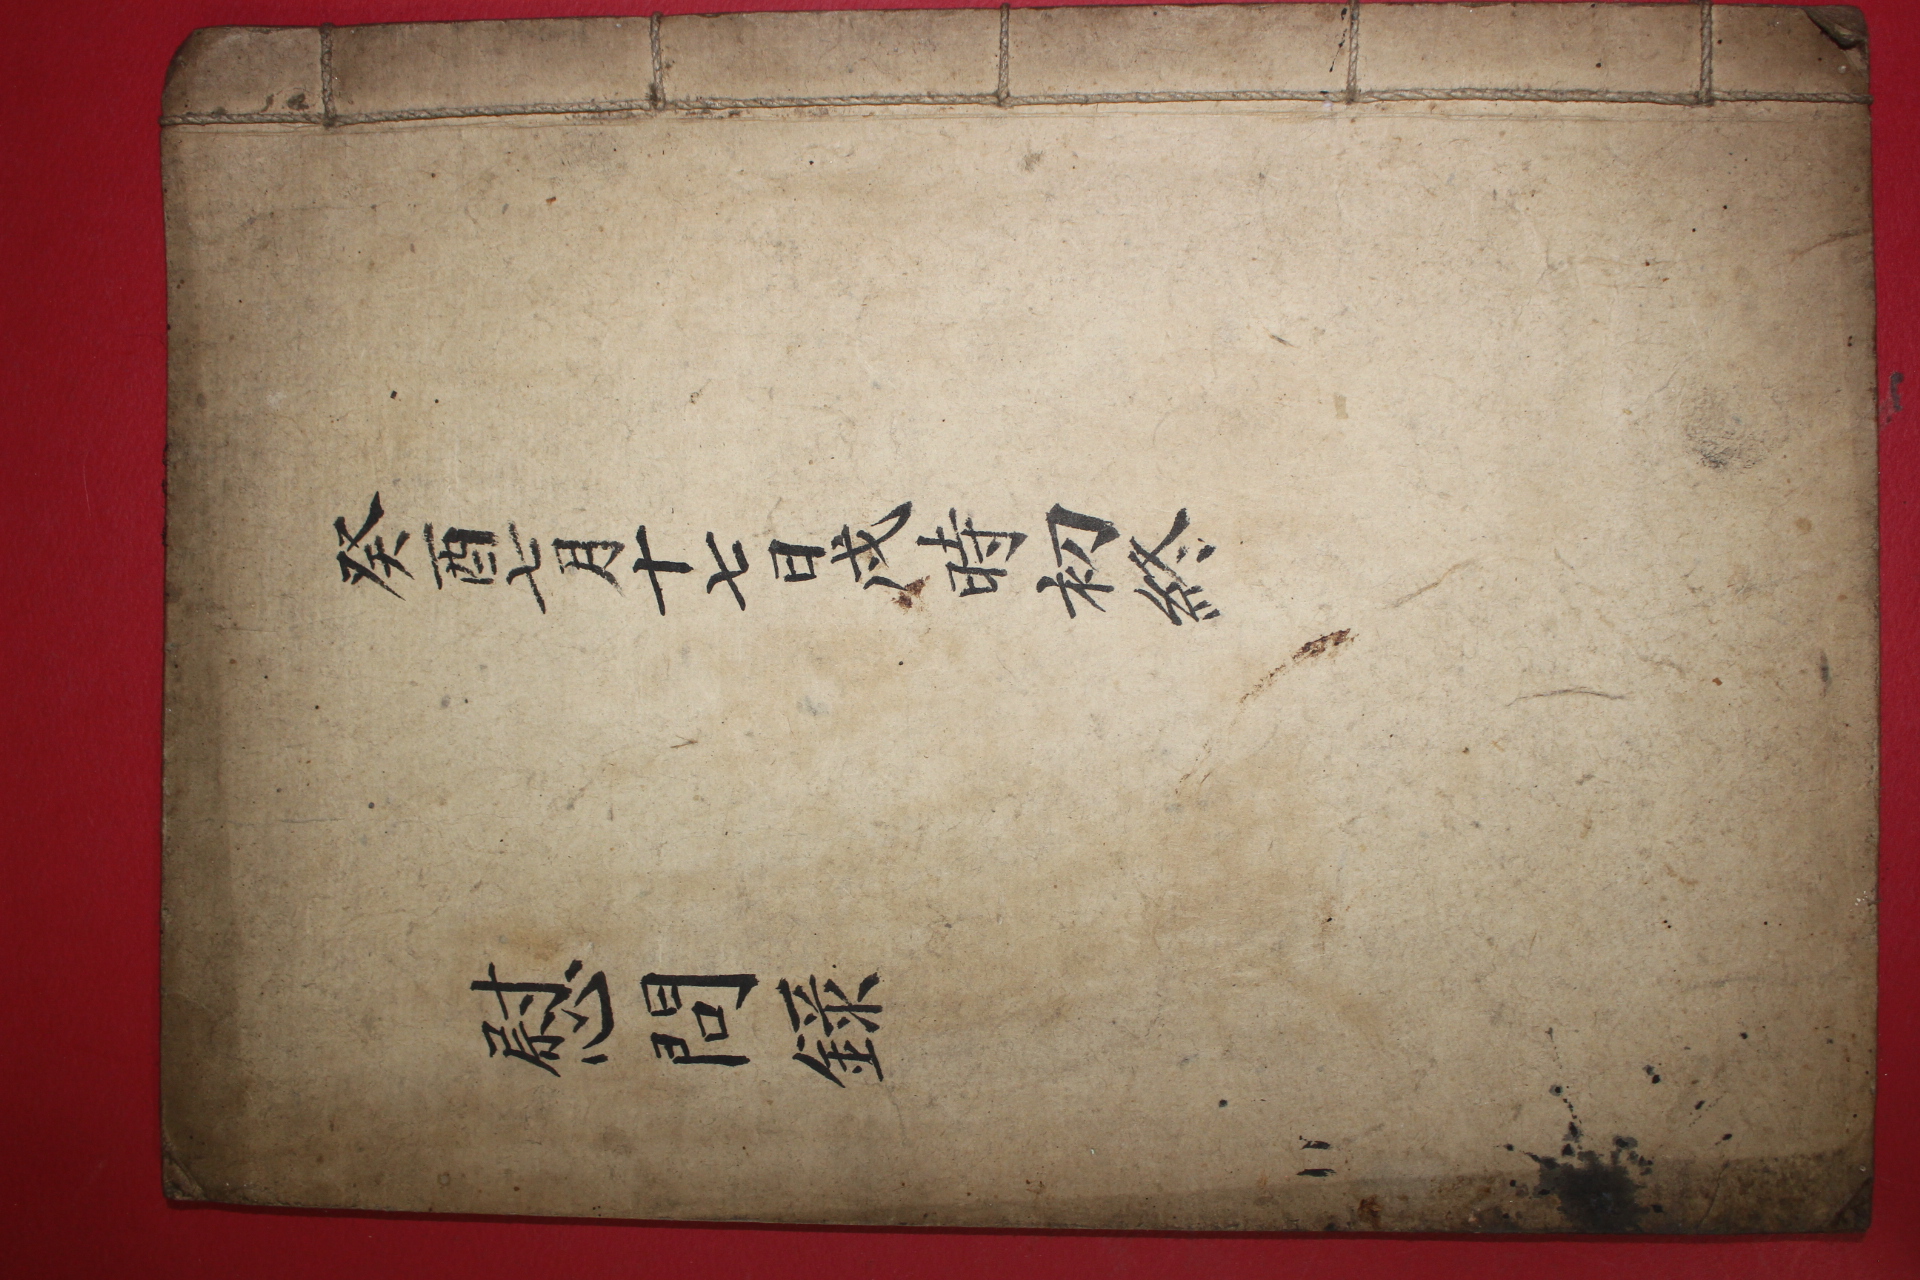 慰問錄
癸酉七月十七日戌時初終